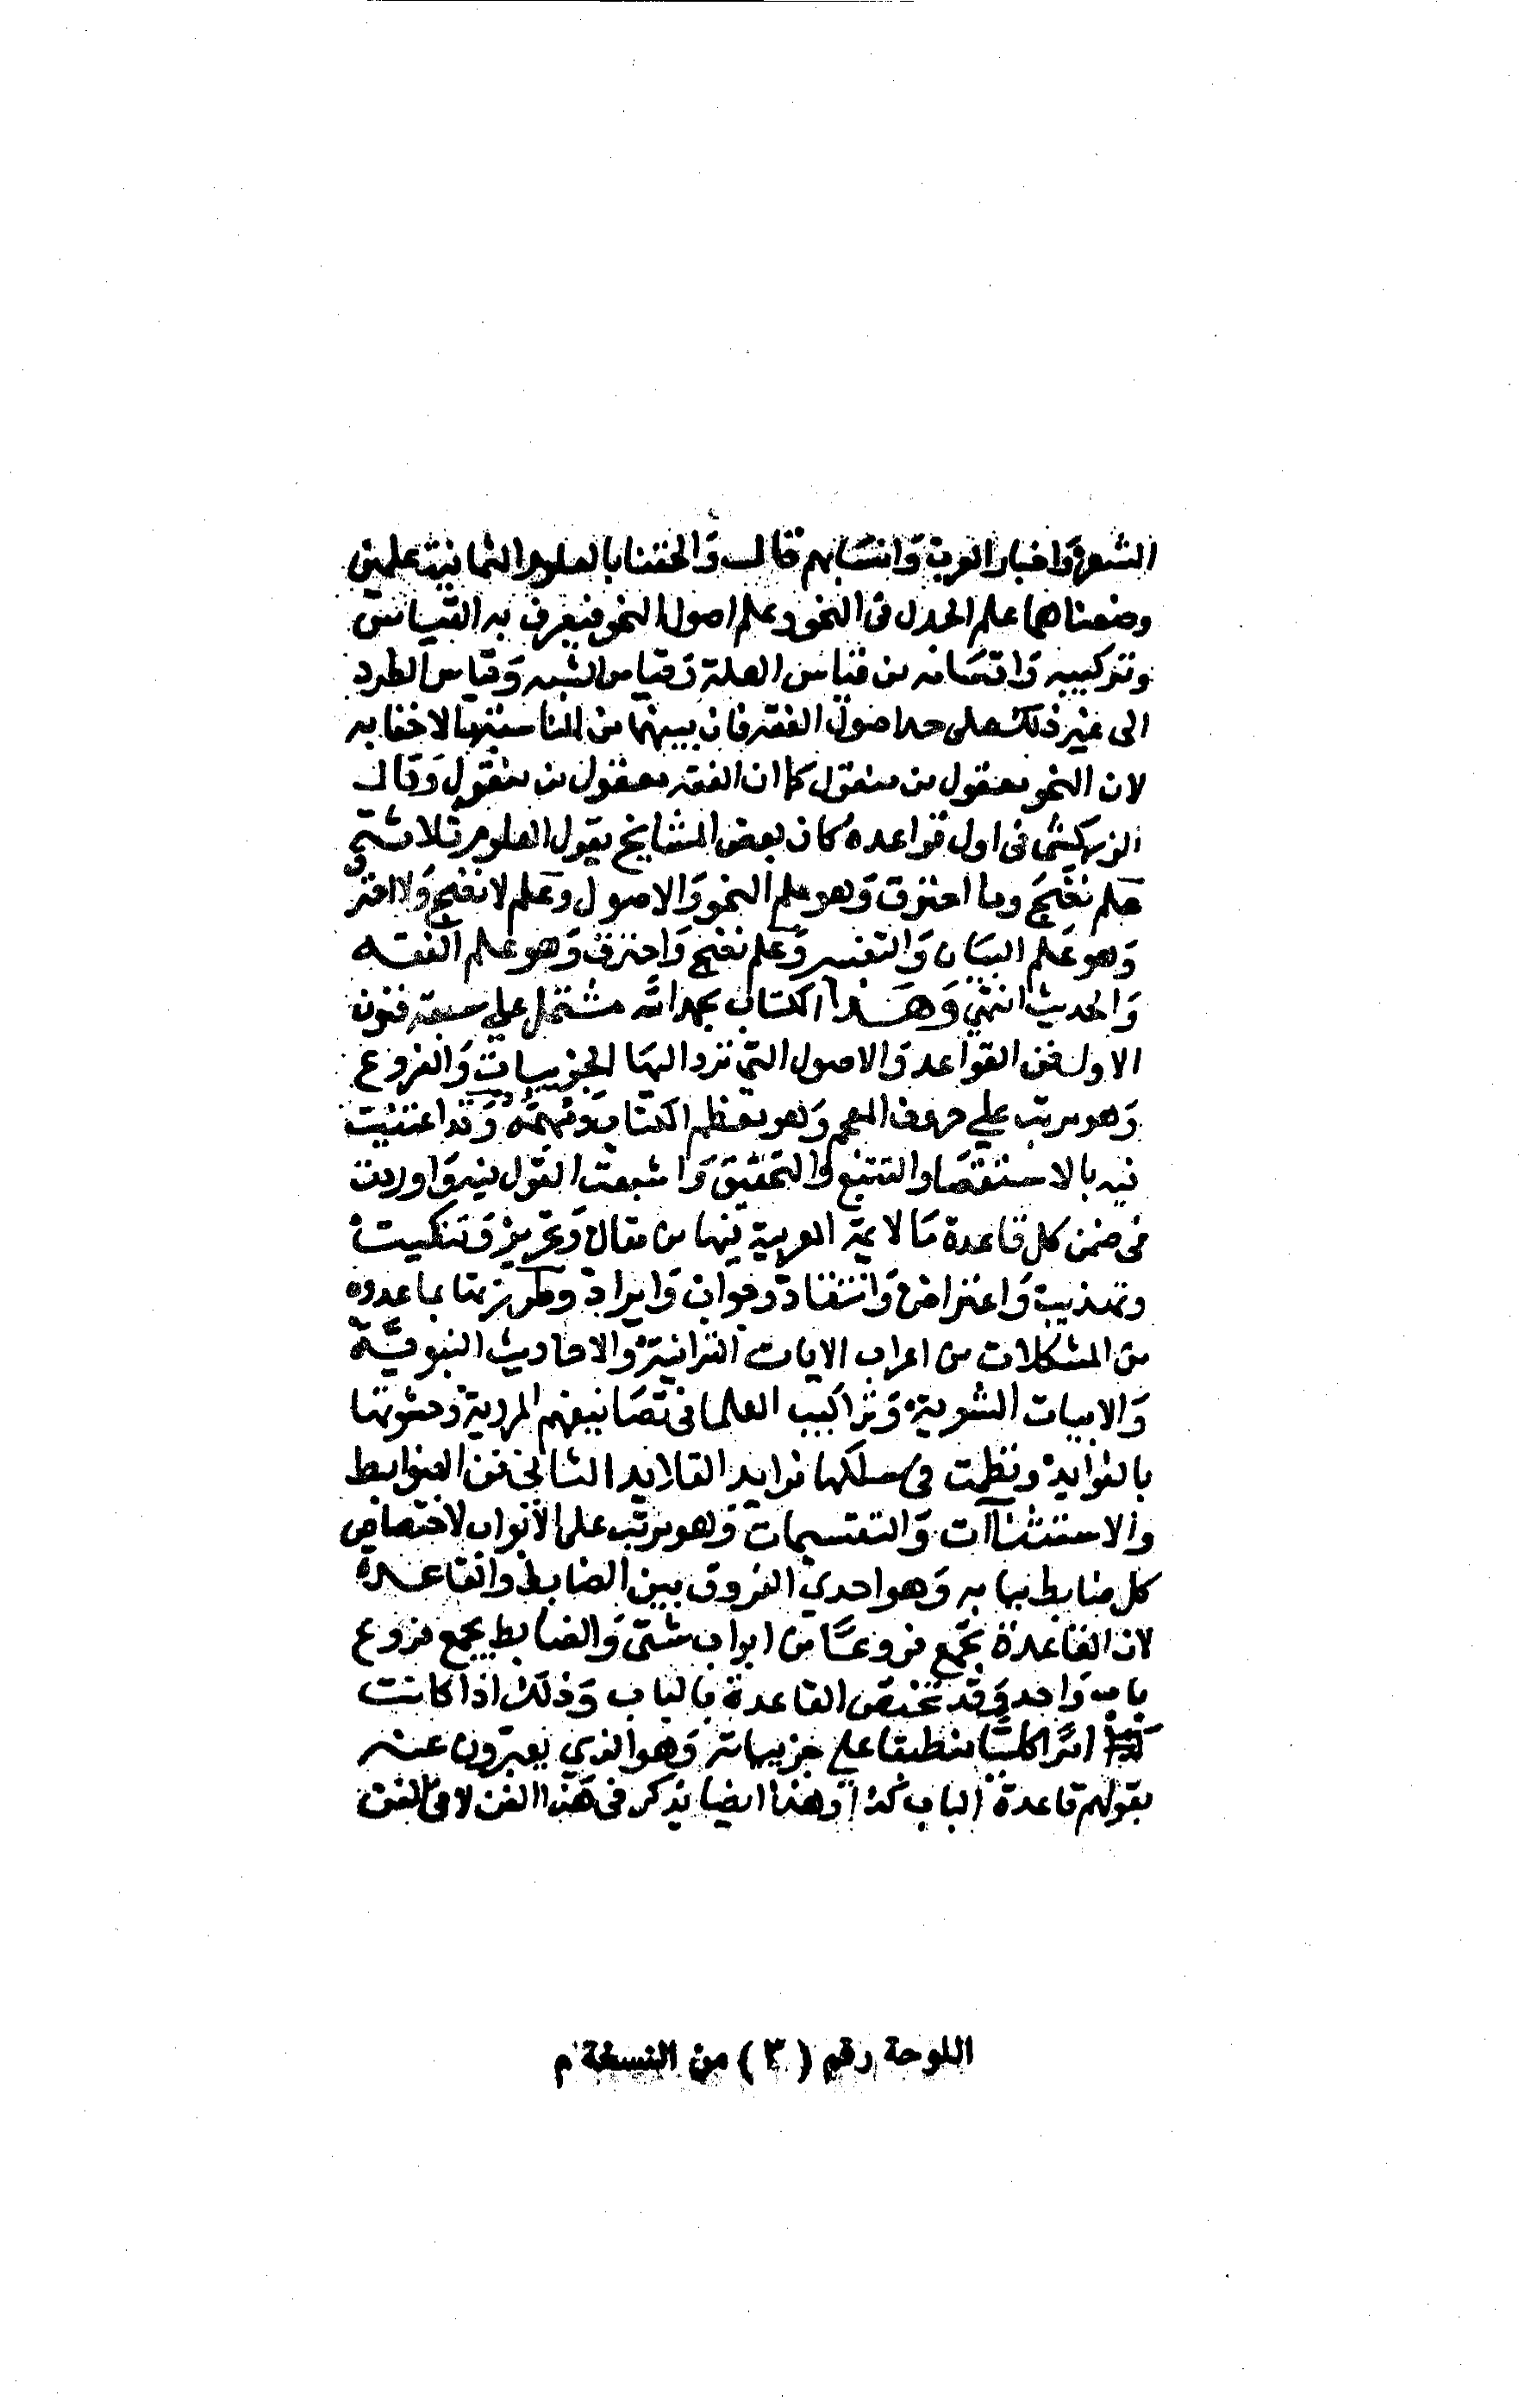 الشعر وَاخبار العرب وَانسَابهم قال وَالحقنا بالعلوم الثمانية علمين
وضعناهما علم الجدل فى النحو وعلم اصول النحو فيعرف به القياس
وتركيبه وَاقسَامه من قياس العلة وَقياس الشبه وَقياس الطرد
الى غير ذلك على حد اصول الفقه فان بينهما من المناسبة مالا خفا به
لان النحو معقول من منقول كما ان الفقه معقول من منقول وَقال
الزركشى فى اول قواعده كان بعض المشايخ يقول العلوم ثلاثة
علم نضجَ وما احترق وَهو علم النحو وَالاصول وعلم لا نضج وَلا احترق
وَهو عَلم البيَان وَالتفسير وَعلم نضج وَاحترق وَهو علم الفقه
وَالحديث انتهى وَهَذا الكتاب بحمد الله مشتمل على سبعة فنون
الاول فن القواعد وَالاصول التى ترد اليهَا الجزييات وَالفروع
وَهو مرتب على حروف المعجم وَهو معظم الكتاب وَمهمه وَقد اعتنيت
فيه بالاستقصَا والتتبع وَالتحقيق وَاشبعت القول فيه وَاوردت
فى ضمن كل قاعدة مَا لايمة العربية فيها من مقال وَتحرير وَتنكيت
وتهذيب وَاعتراض وَانتقاد وجواب وَايراد وطرزتها بما عدوه
من المشكلات من اعراب الايات القرانية وَالاحاديث النبوية
وَالابيات الشعرية وَتراكيب العلما فى تصَانيفهم المروية وحشوتها
بالفوايد ونظمت فى سلكها فرايد القلايد الثانى فن الضوابط
والاستثناآت وَالتقسيمات وَهو مرتب على الأبواب لاختصاص
كل ضابط ببابه وَهو احدي الفروق بين الضابط والقاعدة
لان القاعدة تجمع فروعًا من ابواب شتى وَالضابط يجمع فروع
باب وَاحد وَقد تختص القاعدة بالباب وَذلك اذا كانت
امرًا كليًا منطبقا على جزيياته وَهو الذي يعبرون عنه
بقولهم قاعدة الباب كذا وَهذا ايضا يذكر فى هَذا الفن لا فى الفن
اللوحة رقم (٣) من النسخة م